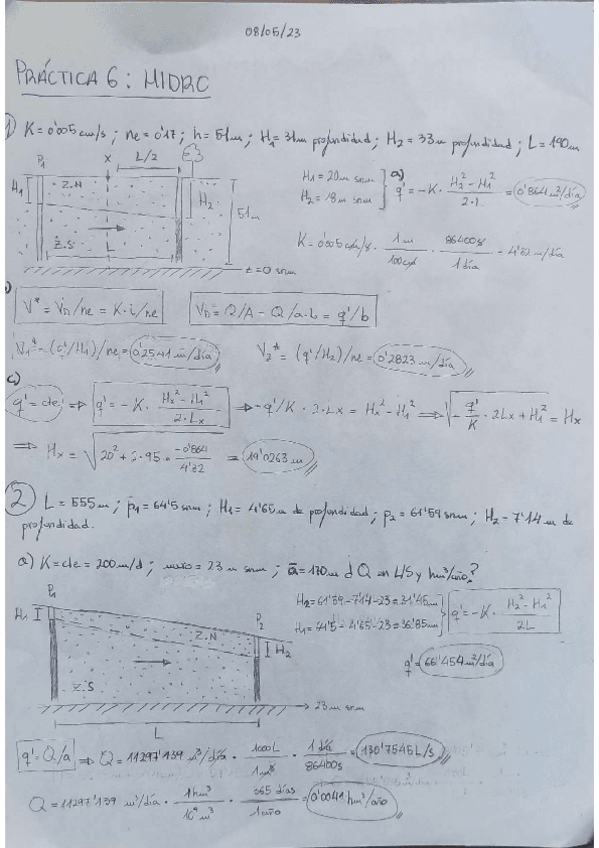 08/05/23
PRÁCTICA 6: HIDRO
1) K = 0'005 cm/s ; ne = 0'17 ; h = 51m ; H₁ = 31m profundidad ; H₂ = 33m profundidad ; L = 190m
P₁ X L/2
H₁ Z.N H₂ 51m
Z.S L
z=0 snm
H₁ = 20m snm
H₂ = 18m snm
a) q' = -K · (H₂² - H₁²)/(2·L) = 0'864 m²/día
K = 0'005 cm/s · 1m/100cm · 86400s/1 día = 4'32 m/día
V* = V_D/ne = K·i/ne
V_D = Q/A = Q/a·b = q'/b
V₁* = (q'/H₁)/ne = 0'2541 m/día
V₂* = (q'/H₂)/ne = 0'2823 m/día
c) q' = cte ⇒ q' = -K · (Hx² - H₁²)/(2·Lx) ⇒ -q'/K · 2·Lx = Hx² - H₁² ⇒ √(-q'/K · 2Lx + H₁²) = Hx
⇒ Hx = √(20² + 2·95 · -0'864/4'32) = 19'0263 m
2 L = 555m ; p₁ = 64'5 snm ; H₁ = 4'65m de profundidad ; p₂ = 61'59 snm ; H₂ = 7'14 m de
profundidad.
a) K = cte = 200 m/d ; muro = 23 m snm ; a = 170m ¿ Q en L/s y hm³/año?
P₁
H₁ P₂
Z.N H₂
Z.S
23 m snm
L
H₂ = 61'59 - 7'14 - 23 = 31'45m
H₁ = 64'5 - 4'65 - 23 = 36'85m
q' = -K · (H₂² - H₁²)/(2L)
q' = 66'454 m²/día
q' = Q/a ⇒ Q = 11297'139 m³/día · 1000L/1m³ · 1 día/86400s = 130'7546 L/s
Q = 11297'139 m³/día · 1hm³/10⁶ m³ · 365 días/1 año = 0'0041 hm³/año